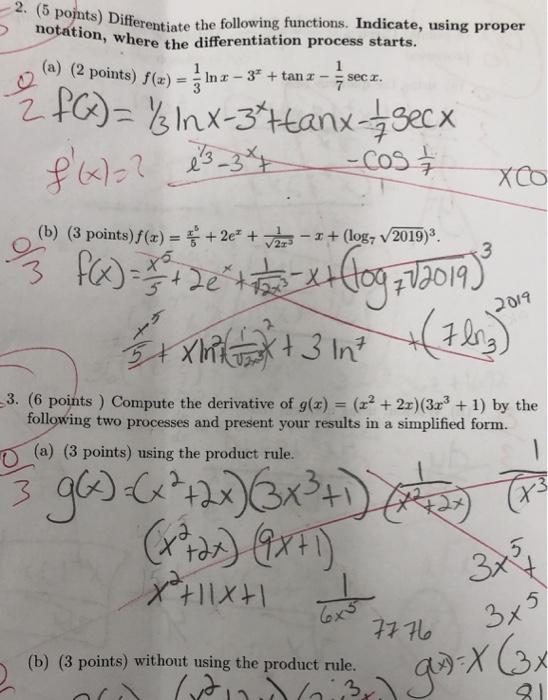 2. (5 points) Differentiate the following functions. Indicate, using proper
notation, where the differentiation process starts.
(a) (2 points) f(x) = 1/3 ln x − 3^x + tan x − 1/7 sec x.
0/2 f(x) = 1/3 lnx-3^x+tanx-1/7 secx
f'(x)=? e^1/3-3^x+ -cos 1/7 xco
(b) (3 points) f(x) = x^5/5 + 2e^x + 1/√2x^3 − x + (log₇ √2019)^3.
0/3 f(x) = x^5/5 + 2e^x + 1/√2x^3 -x+(log₇√2019)^3
x^5/5 + +3 ln^7 +(7ln₃)^2019
3. (6 points ) Compute the derivative of g(x) = (x^2 + 2x)(3x^3 + 1) by the
following two processes and present your results in a simplified form.
(a) (3 points) using the product rule.
0/3 g(x)=(x^2+2x)(3x^3+1) 1/(x^2+2x) 1/(x^3
(x^2+2x) (9x+1)
3x^5+
x^2+11x+1 1/6x^5
7776 3x^5
(b) (3 points) without using the product rule. g(x)=x(3x